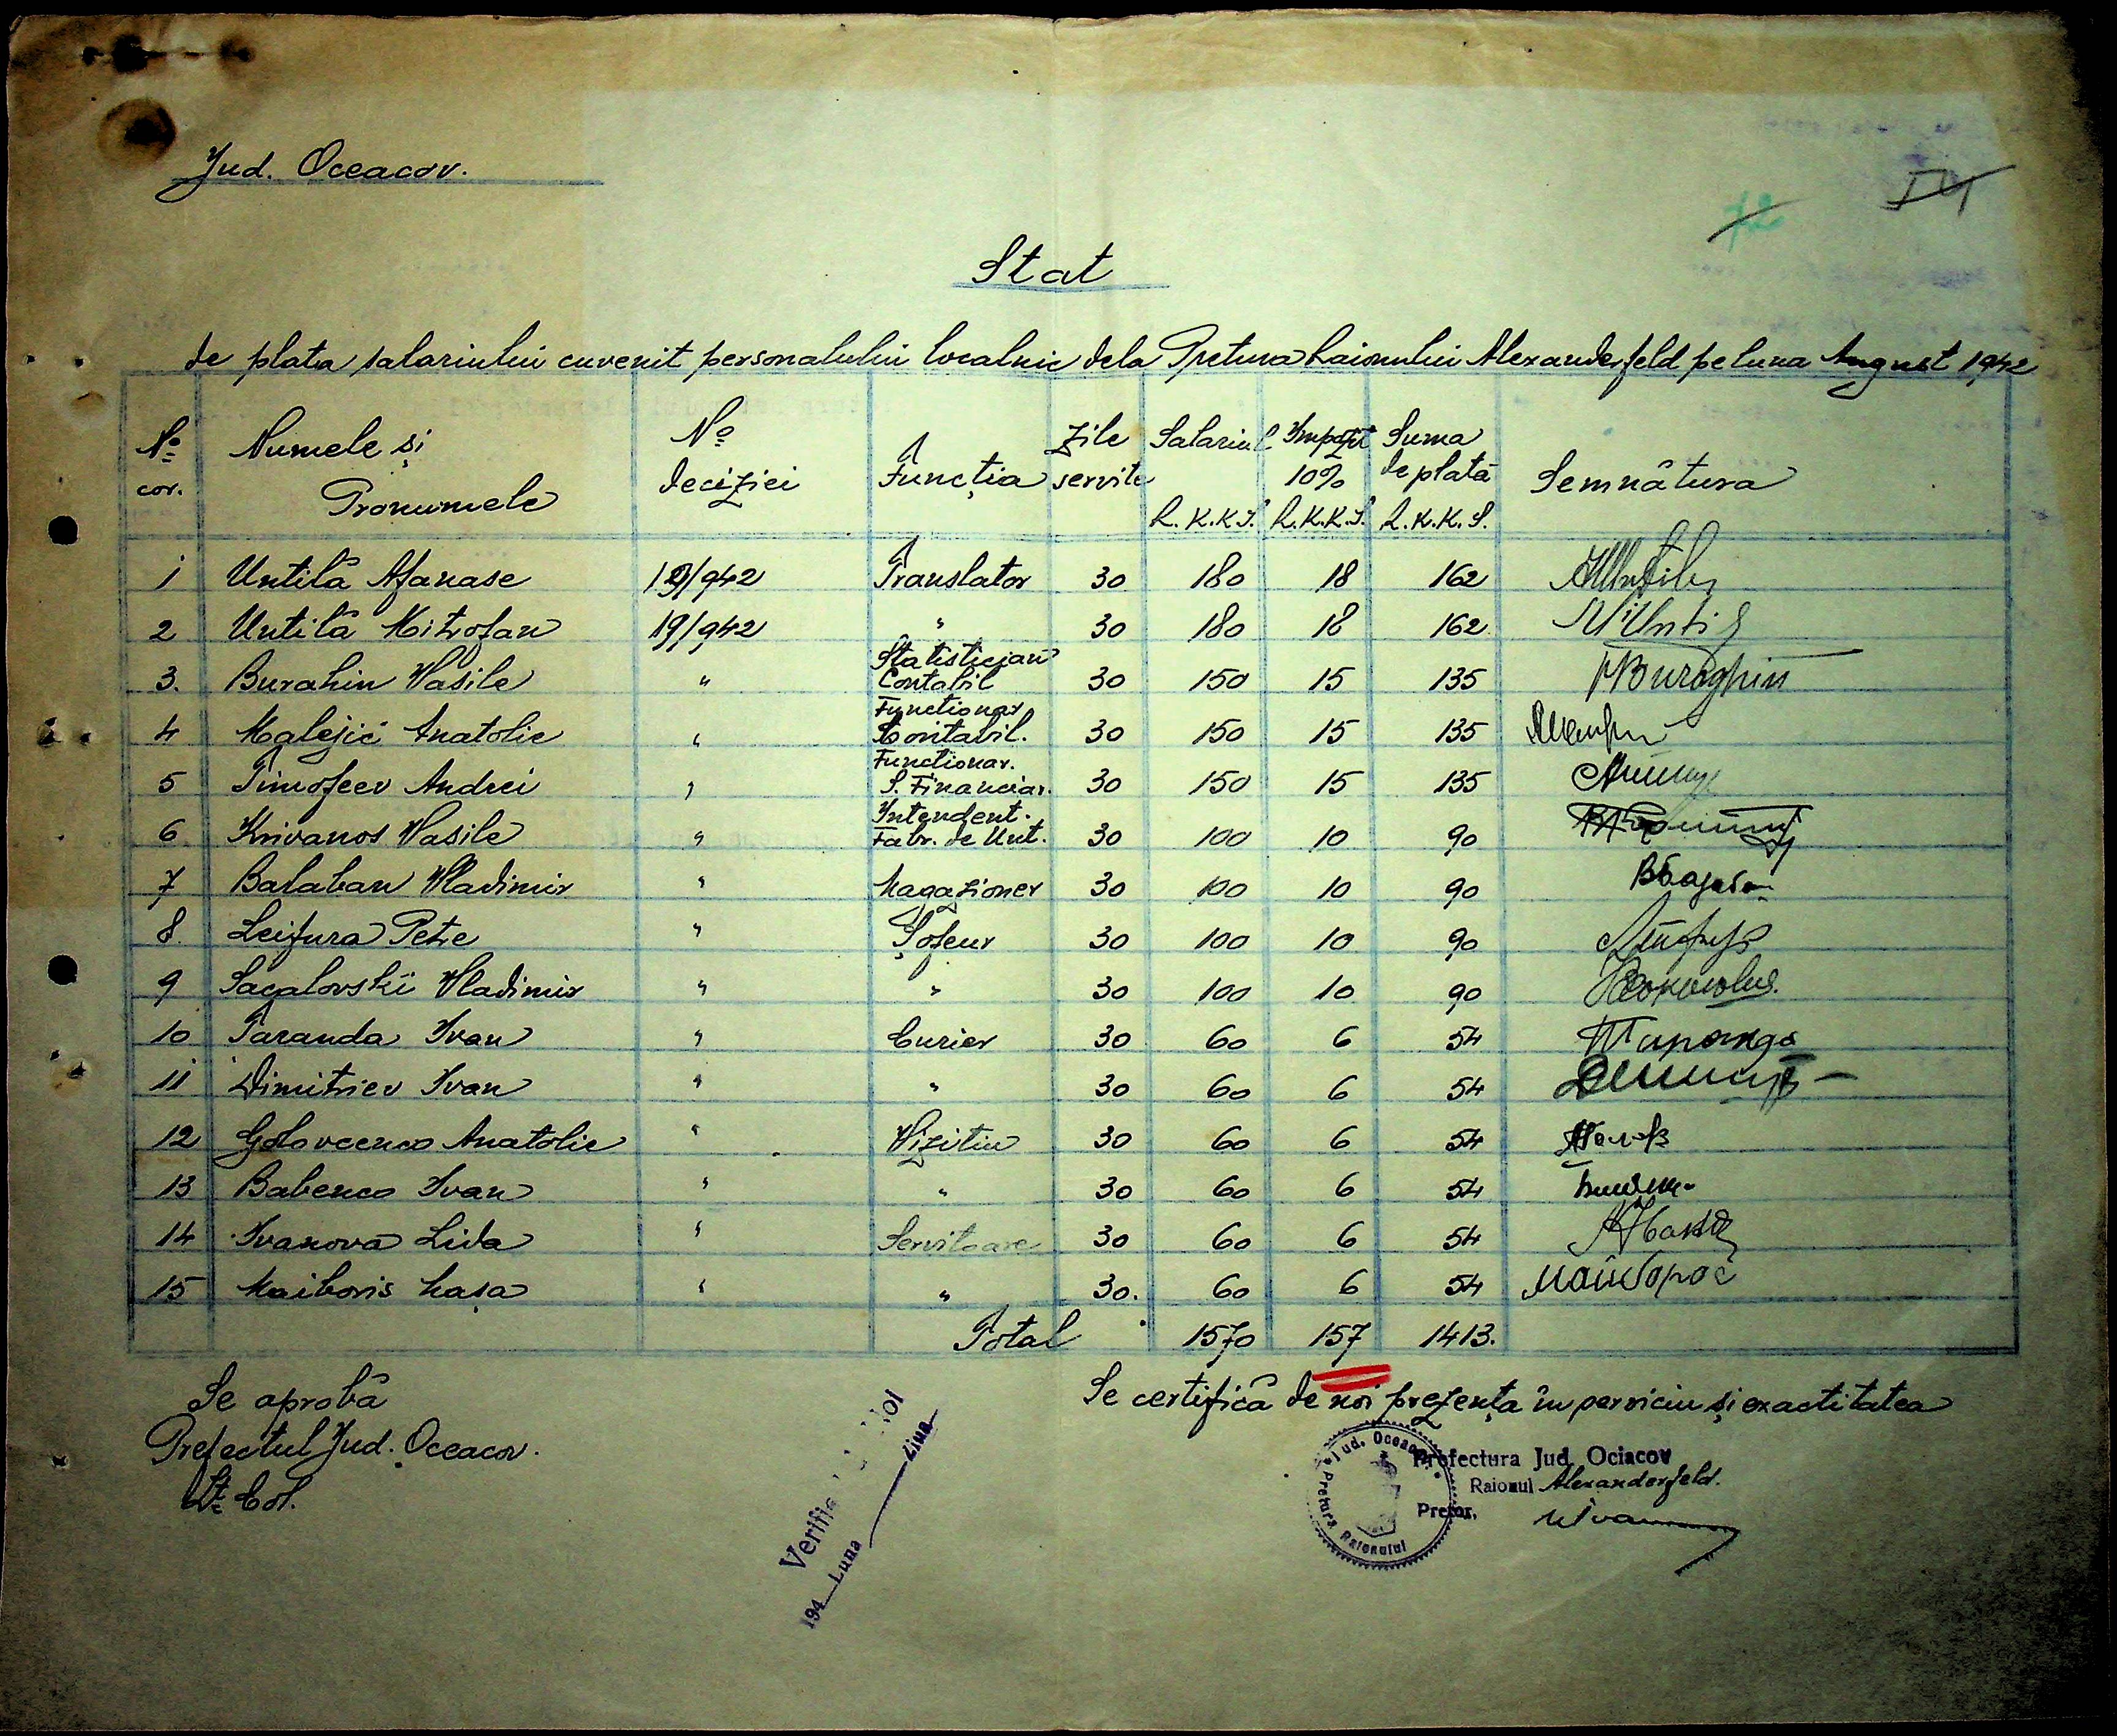 Jud. Oceacov.
Stat
de plata salariului cuvenit personalului localnic dela Pretura Raionului Alexanderfeld pe luna August 1942
No cor. Numele și Pronumele No deciziei Funcția Zile servite Salariul R.K.K.S. Impozit 10% R.K.K.S. Suma de plată R.K.K.S. Semnătura
1 Untilă Afanase 19/942 Translator 30 180 18 162
2 Untilă Mitrofan 19/942 " 30 180 18 162
3. Burahin Vasile " Statistician Contabil 30 150 15 135
4 Malejic Anatolie " Functionar Contabil. 30 150 15 135
5 Timofeev Andrei " Functionar. S. Financiar. 30 150 15 135
6 Krivanos Vasile " Intendent. Fabr. de Unt. 30 100 10 90
7 Balaban Vladimir " Magazioner 30 100 10 90
8. Leifura Petre " Șofeur 30 100 10 90
9 Sacalovskii Vladimir " " 30 100 10 90
10 Taranda Ivan " Curier 30 60 6 54 Таранда
11 Dimitriev Ivan " " 30 60 6 54
12 Golovcenco Anatolie " Vizitiu 30 60 6 54
13 Babenco Ivan " " 30 60 6 54
14 Ivanova Lida " Servitoare 30 60 6 54
15 Maiboris Masa " " 30. 60 6 54
Total 1570 157 1413.
Se aprobă
Prefectul Jud. Oceacov.
Lt. Col.
Se certifică de noi prezența în serviciu și exactitatea
194 Luna Ziua
Jud. Oceacov Pretura Raionului
Prefectura Jud. Ociacov
Raionul Alexanderfeld.
Pretor,